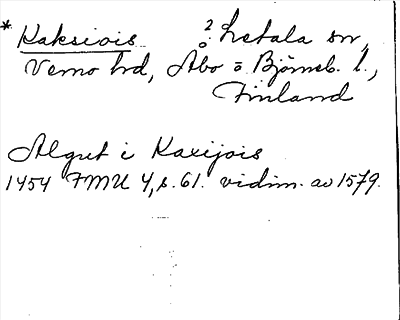 * Kaksiois ? Letala sn,
Vemo hd, Åbo o Björneb. l.,
Finland
Algut i Kaxijois
1454 FMU 4, s. 61. vidim. av 1579.